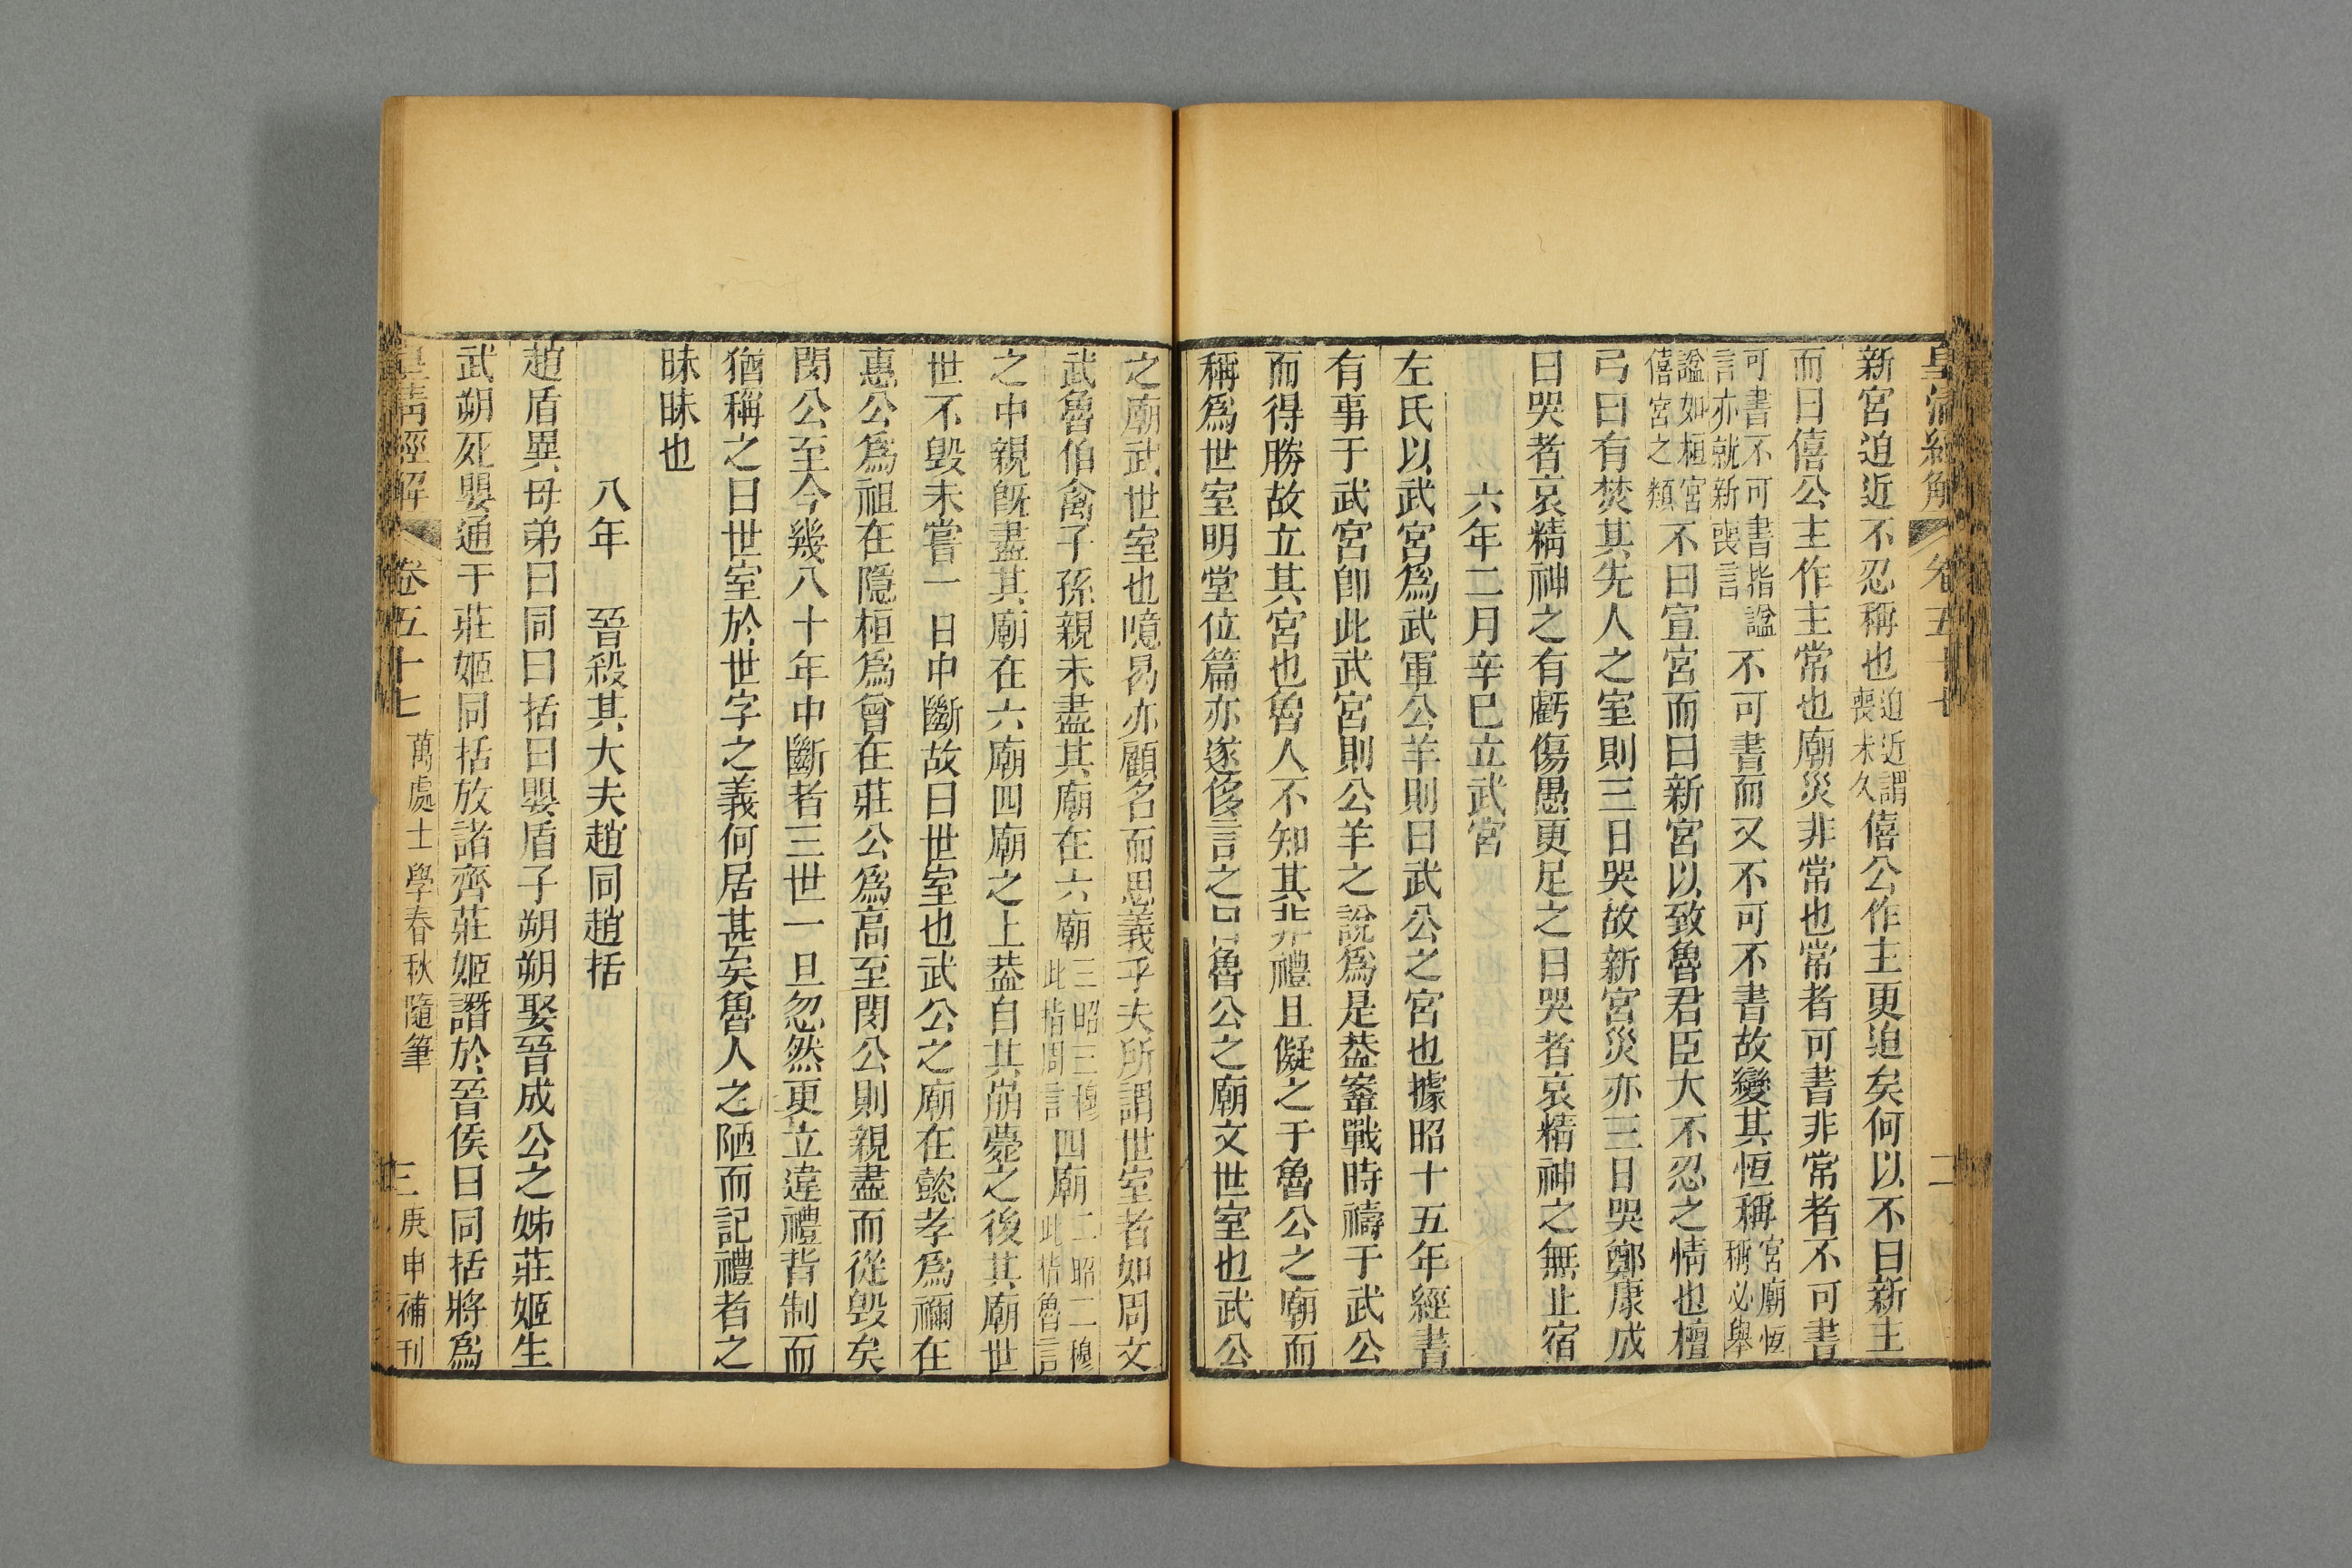 皇清經解 卷五十七 二
新宮迫近不忍稱也迫近謂喪未久僖公作主更迫矣何以不曰新主
而曰僖公主作主常也廟災非常也常者可書非常者不可書
可書不可書指諡言亦就新喪言不可書而又不可不書故變其恒稱宮廟恒稱必舉
諡如桓宮僖宮之類不曰宣宮而曰新宮以致魯君臣大不忍之情也檀
弓曰有焚其先人之室則三日哭故新宮災亦三日哭鄭康成
曰哭者哀精神之有虧傷愚更足之曰哭者哀精神之無止宿
六年二月辛巳立武宮
左氏以武宮爲武軍公羊則曰武公之宮也據昭十五年經書
有事于武宮卽此武宮則公羊之說爲是葢鞌戰時禱于武公
而得勝故立其宮也魯人不知其非禮且儗之于魯公之廟而
稱爲世室明堂位篇亦遂侈言之曰魯公之廟文世室也武公
之廟武世室也噫曷亦顧名而思義乎夫所謂世室者如周文
武魯伯禽子孫親未盡其廟在六廟三昭三穆此指周言四廟二昭二穆此指魯言
之中親旣盡其廟在六廟四廟之上葢自其崩薨之後其廟世
世不毀未嘗一日中斷故曰世室也武公之廟在懿孝爲禰在
惠公爲祖在隱桓爲曾在莊公爲高至閔公則親盡而從毀矣
閔公至今幾八十年中斷者三世一旦忽然更立違禮背制而
猶稱之曰世室於世字之義何居甚矣魯人之陋而記禮者之
昧昧也
八年 晉殺其大夫趙同趙括
趙盾異母弟曰同曰括曰嬰盾子朔朔娶晉成公之姊莊姬生
武朔死嬰通于莊姬同括放諸齊莊姬譖於晉侯曰同括將爲
皇清經解 卷五十七 萬處士學春秋隨筆 三 庚申補刊